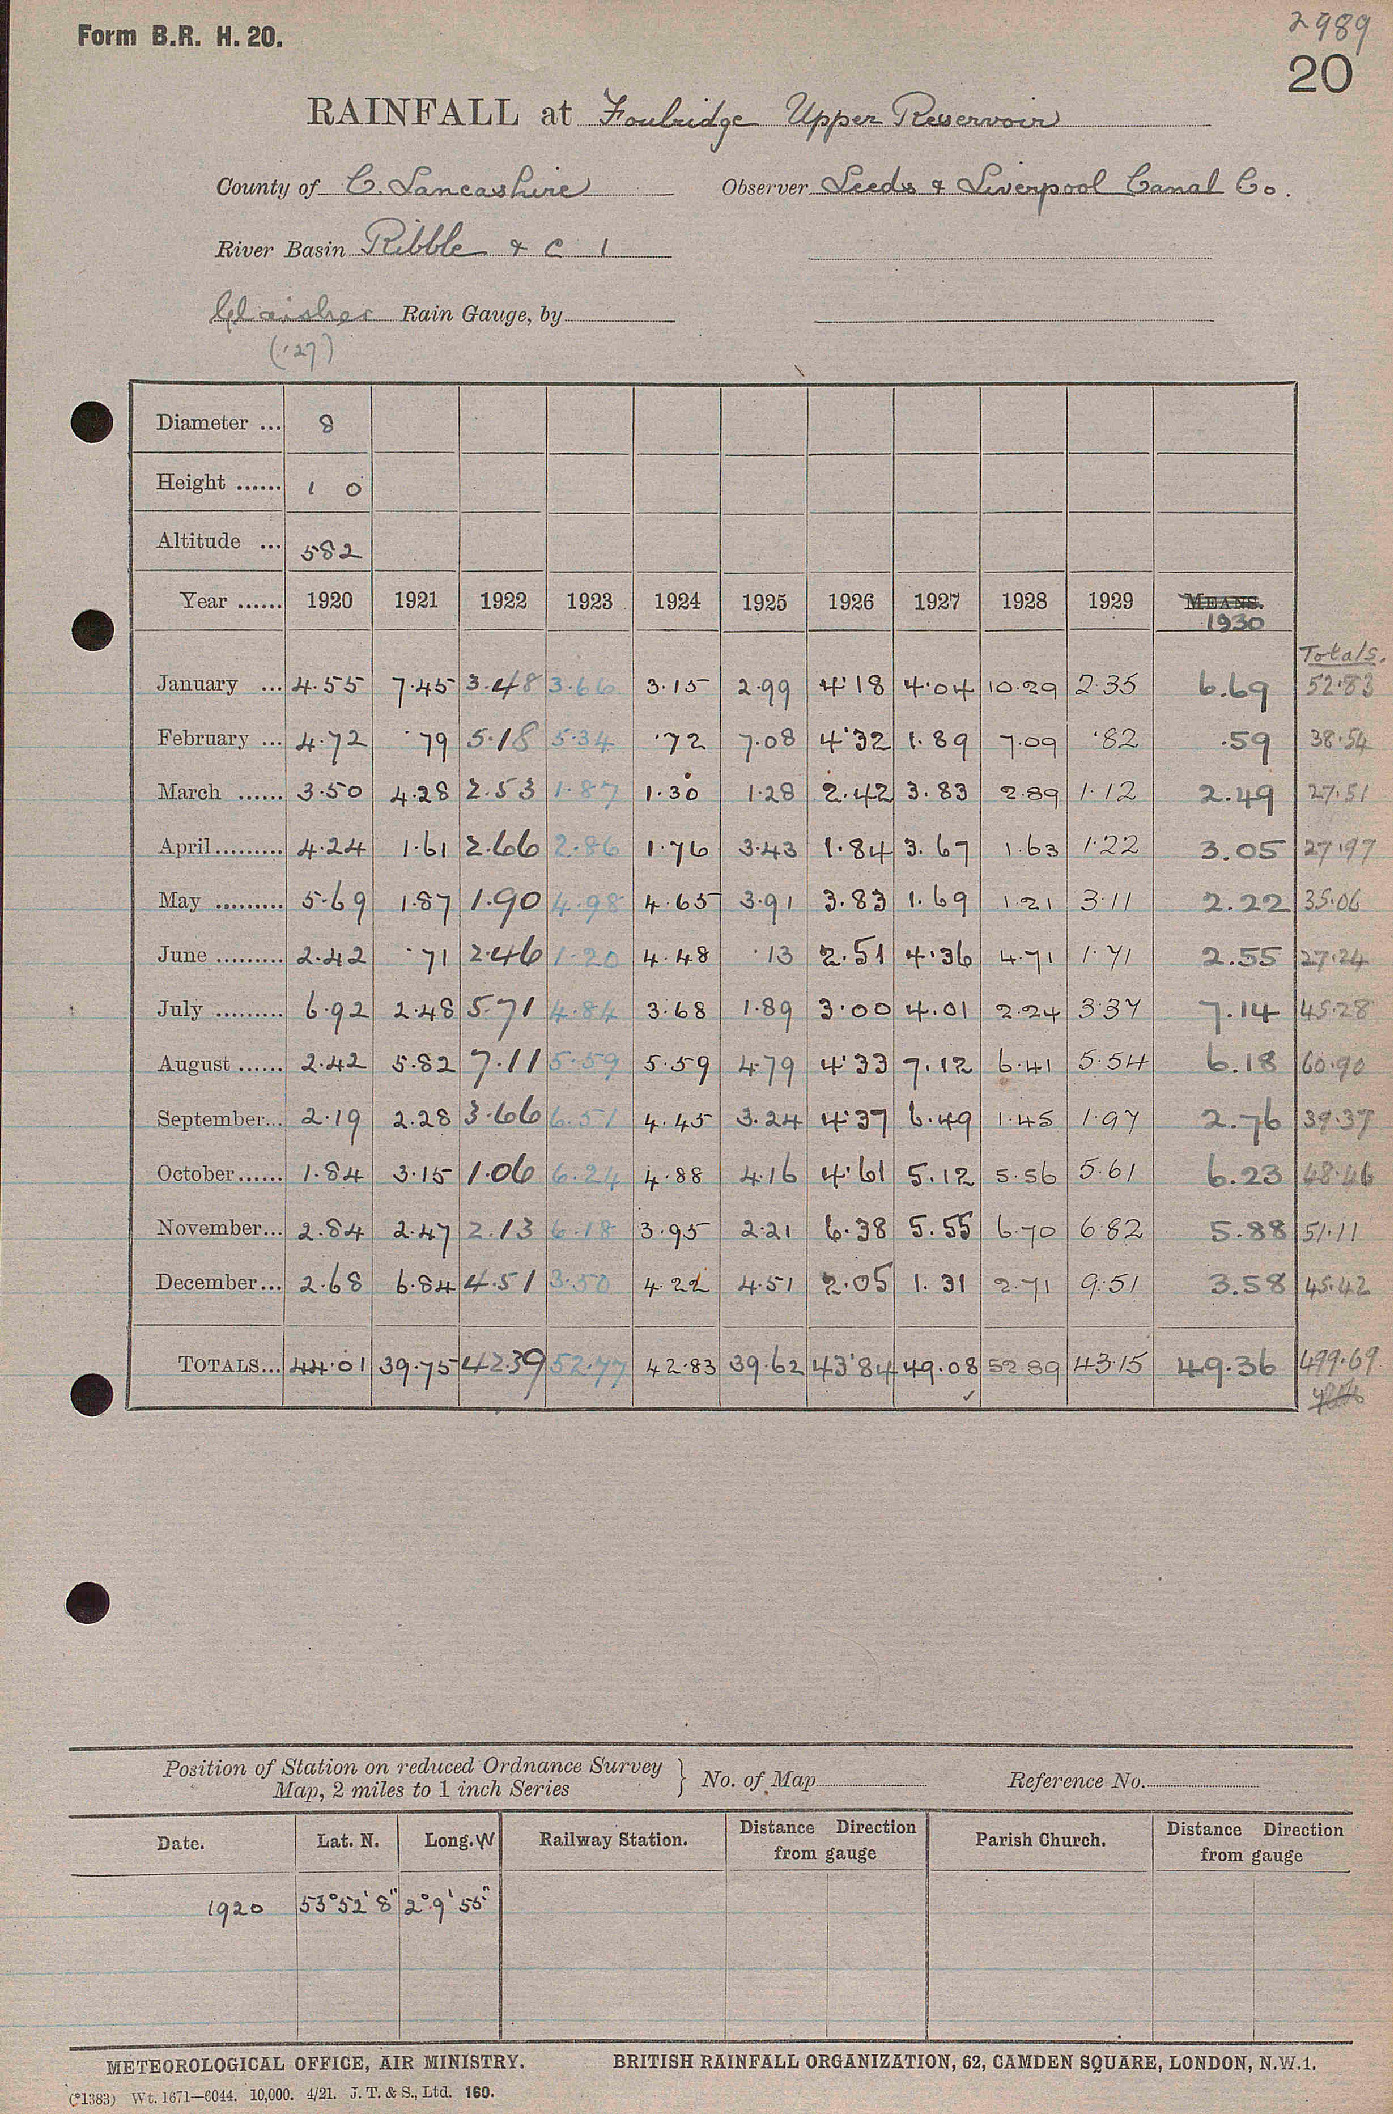 2989
Form B.R. H. 20.
20
RAINFALL at Foulridge Upper Reservoir
County of C. Lancashire Observer Leeds & Liverpool Canal Co.
River Basin Ribble & C 1
Glaisher Rain Gauge, by
('27)
Diameter ... 8
Height ...... 1 0
Altitude ... 582
Year ...... 1920 1921 1922 1923 1924 1925 1926 1927 1928 1929 MEANS.
1930
Totals.
January ... 4.55 7.45 3.48 3.66 3.15 2.99 4.18 4.04 10.29 2.35 6.69 52.83
February ... 4.72 .79 5.18 5.34 .72 7.08 4.32 1.89 7.09 .82 .59 38.54
March ...... 3.50 4.28 2.53 1.87 1.30 1.28 2.42 3.83 2.89 1.12 2.49 27.51
April......... 4.24 1.61 2.66 2.86 1.76 3.43 1.84 3.67 1.63 1.22 3.05 27.97
May ......... 5.69 1.87 1.90 4.98 4.65 3.91 3.83 1.69 1.21 3.11 2.22 35.06
June ......... 2.42 .71 2.46 1.20 4.48 .13 2.51 4.36 4.71 1.71 2.55 27.24
July ......... 6.92 2.48 5.71 4.84 3.68 1.89 3.00 4.01 2.24 3.37 7.14 45.28
August ...... 2.42 5.82 7.11 5.59 5.59 4.79 4.33 7.12 6.41 5.54 6.18 60.90
September... 2.19 2.28 3.66 6.51 4.45 3.24 4.37 6.49 1.45 1.97 2.76 39.37
October...... 1.84 3.15 1.06 6.24 4.88 4.16 4.61 5.12 5.56 5.61 6.23 48.46
November... 2.84 2.47 2.13 6.18 3.95 2.21 6.38 5.55 6.70 6.82 5.88 51.11
December... 2.68 6.84 4.51 3.50 4.22 4.51 2.05 1.31 2.71 9.51 3.58 45.42
TOTALS... 44.01 39.75 42.39 52.77 42.83 39.62 43.84 49.08 52.89 43.15 49.36 499.69
Position of Station on reduced Ordnance Survey
Map, 2 miles to 1 inch Series } No. of Map Reference No.
Date. Lat. N. Long. W Railway Station. Distance Direction from gauge Parish Church. Distance Direction from gauge
1920 53°52'8" 2°9'55"
METEOROLOGICAL OFFICE, AIR MINISTRY. BRITISH RAINFALL ORGANIZATION, 62, CAMDEN SQUARE, LONDON, N.W.1.
(*1383) Wt. 1671—6044. 10,000. 4/21. J. T. & S., Ltd. 160.